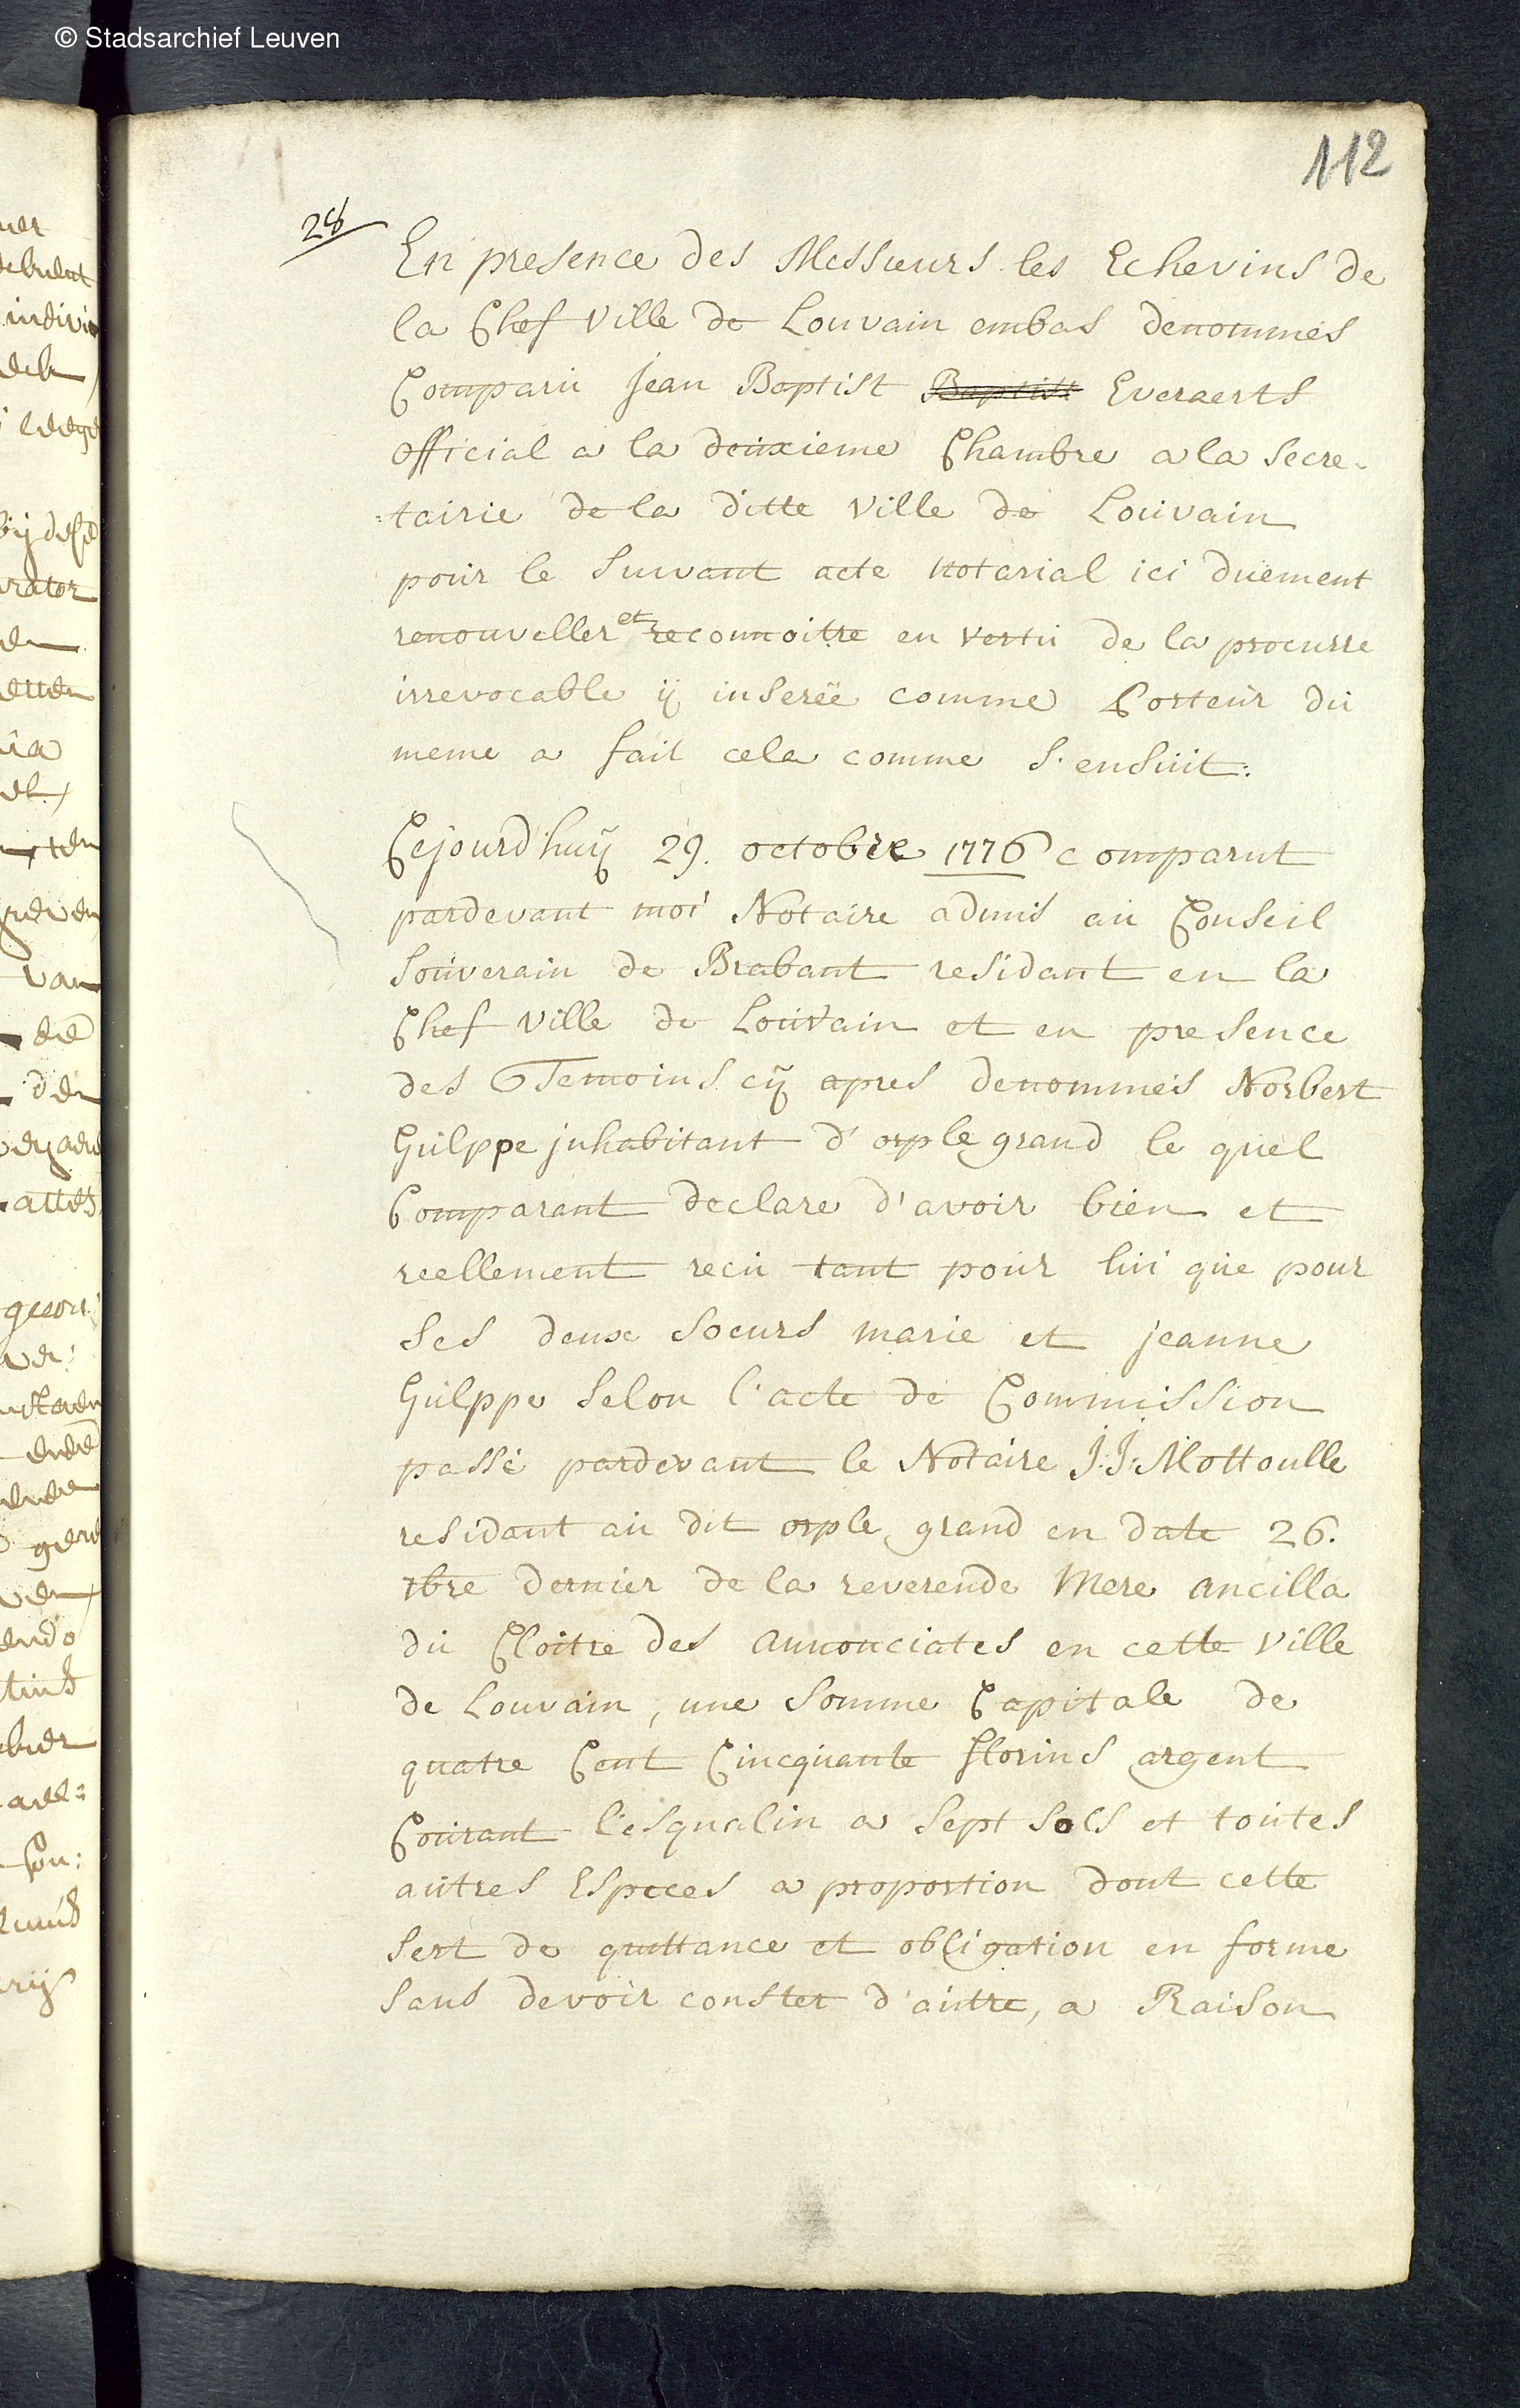 © Stadsarchief Leuven
112
28
En presence des Messieurs les Echevins de
la Chef Ville de Louvain embas denommés
Comparu Jean Baptist Baptist Everaerts
official a la deuxieme Chambre a la Secre-
=tairie de la ditte Ville de Louvain
pour le Suivant acte notarial ici duement
renouveller et reconnoitre en vertu de la procurre
irrevocable ij inserëe comme Porteur du
meme a fait cela comme S'ensuit:
Cejourd'huij 29. octobre 1776 comparut
pardevant moi Notaire admis au Conseil
Souverain de Brabant residant en la
Chef Ville de Louvain et en presence
des Temoins cij apres denommés Norbert
Gulppe inhabitant d'orple grand le quel
Comparant declare d'avoir bien et
reellement recu tant pour lui que pour
Ses deux Soeurs marie et jeanne
Gulppe Selon l'acte de Commission
passé pardevant le Notaire J:J: Mottoulle
residant au dit orple grand en date 26.
7bre dernier de la reverende Mere ancilla
du Cloitre des annonciates en cette Ville
de Louvain, une Somme Capitale de
quatre Cent Cincquante florins argent
Courant l'esqualin a Sept Sols et toutes
autres Especes a proportion dont cette
Sert de quittance et obligation en forme
Sans devoir conster d'autre, a Raison